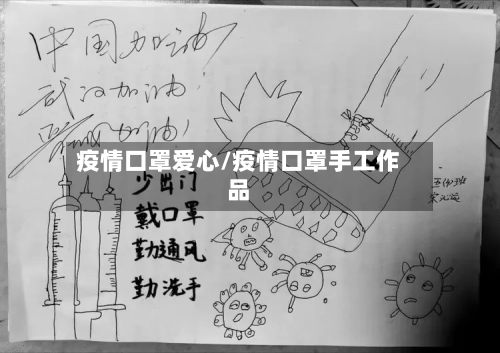 中国加油
武汉加油!
加油!
疫情口罩爱心/疫情口罩手工作
品
少出门
戴口罩
勤通风
勤洗手